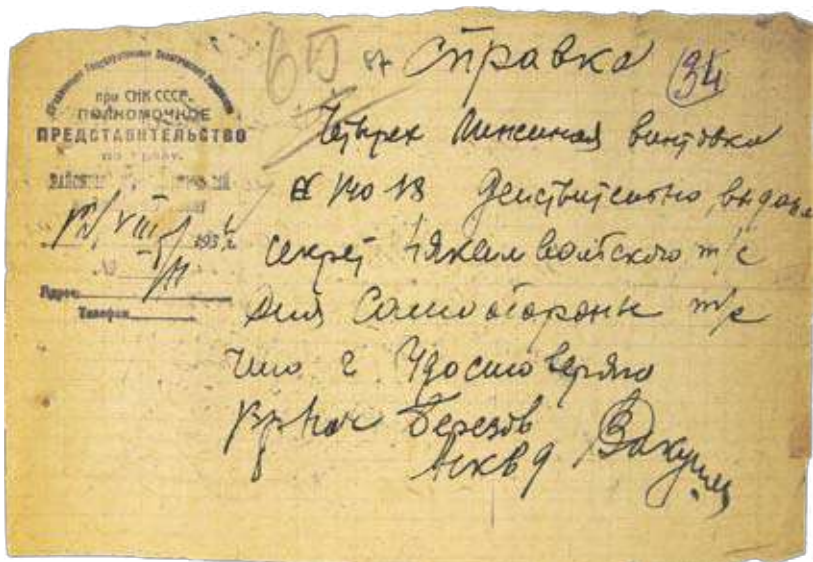 Объединенное Государственное Политическое Управление
при СНК СССР.
ПОЛНОМОЧНОЕ
ПРЕДСТАВИТЕЛЬСТВО
12/VIII 193
№
Адрес
Телефон
Справка
34
Четырех Линейная винтовка
№ 14018 Действительно выдана
секрет т/с
Для Самоохороны т/с
Что и Удостоверяю
Вр Нач Березов
НКВД